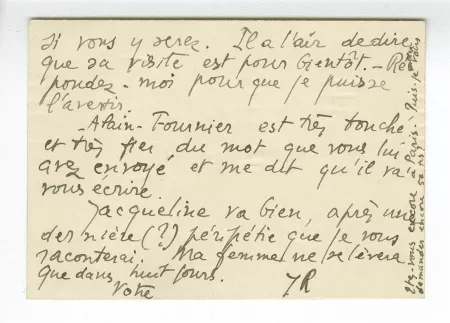 si vous y serez. Il a l'air de dire
que sa visite est pour bientôt. - Ré
pondez-moi pour que je puisse
l'avertir.
- Alain-Fournier est très touché
et très fier du mot que vous lui
avez envoyé et me dit qu'il va
vous écrire.
Jacqueline va bien, après une
dernière (?) péripétie que je vous
raconterai. Ma femme ne se lèvera
que dans huit jours.
Votre JR
Etes-vous encore à Paris - Puis-je vous
demander encore